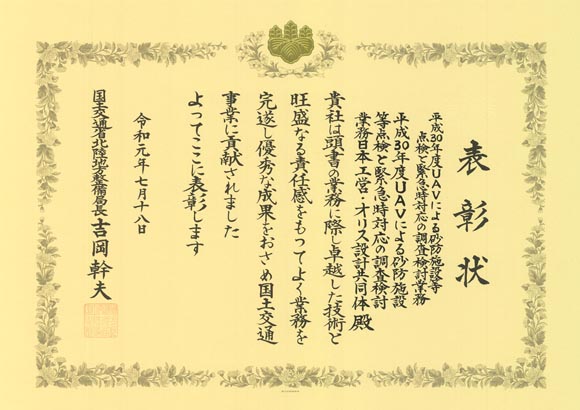 表彰状
平成30年度UAVによる砂防施設等
点検と緊急時対応の調査検討業務
平成30年度UAVによる砂防施設
等点検と緊急時対応の調査検討
業務日本工営・オリス設計共同体 殿
貴社は頭書の業務に際し卓越した技術と
旺盛なる責任感をもってよく業務を
完遂し優秀な成果をおさめ国土交通
事業に貢献されました
よってここに表彰します
令和元年七月十八日
国土交通省北陸地方整備局長 吉岡幹夫